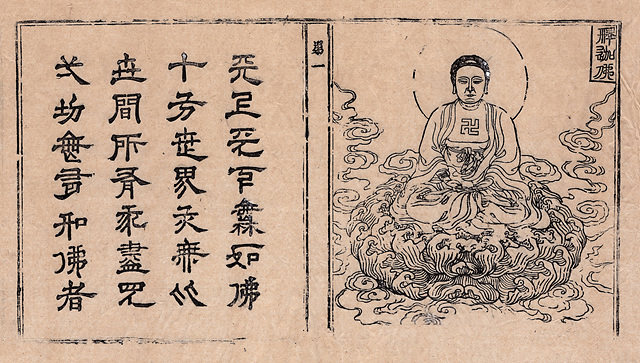 釋迦佛
第一
天上天下橆如佛
十方世界亦無比
世間所有我盡見
弌切無有如佛者